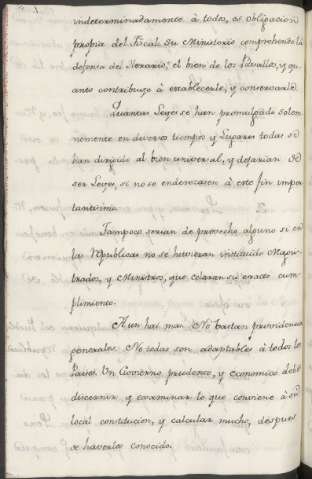 indeterminadamente à todos, es obligacion
propia del Fiscal. Su Ministerio comprehende la
defensa del Herario; el bien de los Vasallos, y qu
anto contribuye à establecerle, y conservarle.
Quantas Leyes se han promulgado solem
nemente en diversos tiempos y Lugares todas se
han dirigido al bien universal, y dejarian de
ser Leyes, si no se enderezasen à este fin impor
tantisimo.
Tampoco serian de provecho alguno si en
las Republicas no se huvieran instituido Magis
trados, y Ministros, que celaran su exacto cum
plimiento.
Aun hai mas. No bastan providencias
generales. No todas son adaptables à todos los
Paises. Un Govierno prudente, y economico debe
discernir, y examinar lo que conviene à su
local constitucion, y calcular mucho, despues
de haverlos conocido.